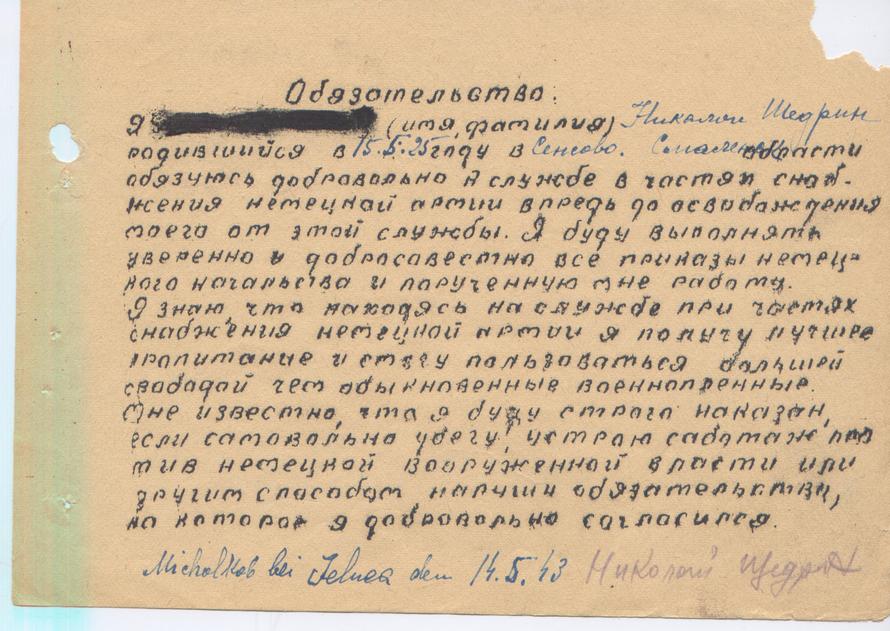 Обязательство.
Я (имя, фамилия) Николай Щедрин
родившийся в 15.5.25 году в Сенсово. области
обязуюсь добровольно к службе в частях снаб-
жения немецкой армии впредь до освобождения
моего от этой службы. Я буду выполнять
уверенно и добросовестно все приказы немец-
кого начальства и порученную мне работу.
Я знаю, что находясь на службе при частях
снабжения немецкой армии я получу лучшее
пропитание и смогу пользоваться большей
свободой чем обыкновенные военнопленные.
Мне известно, что я буду строго наказан,
если самовольно убегу, устрою саботаж про
тив немецкой вооруженной власти или
другим способом наручии обязательства,
на которое я добровольно согласился.
Micholkob bei Jelnea den 14.5.43 Николай Щедрин